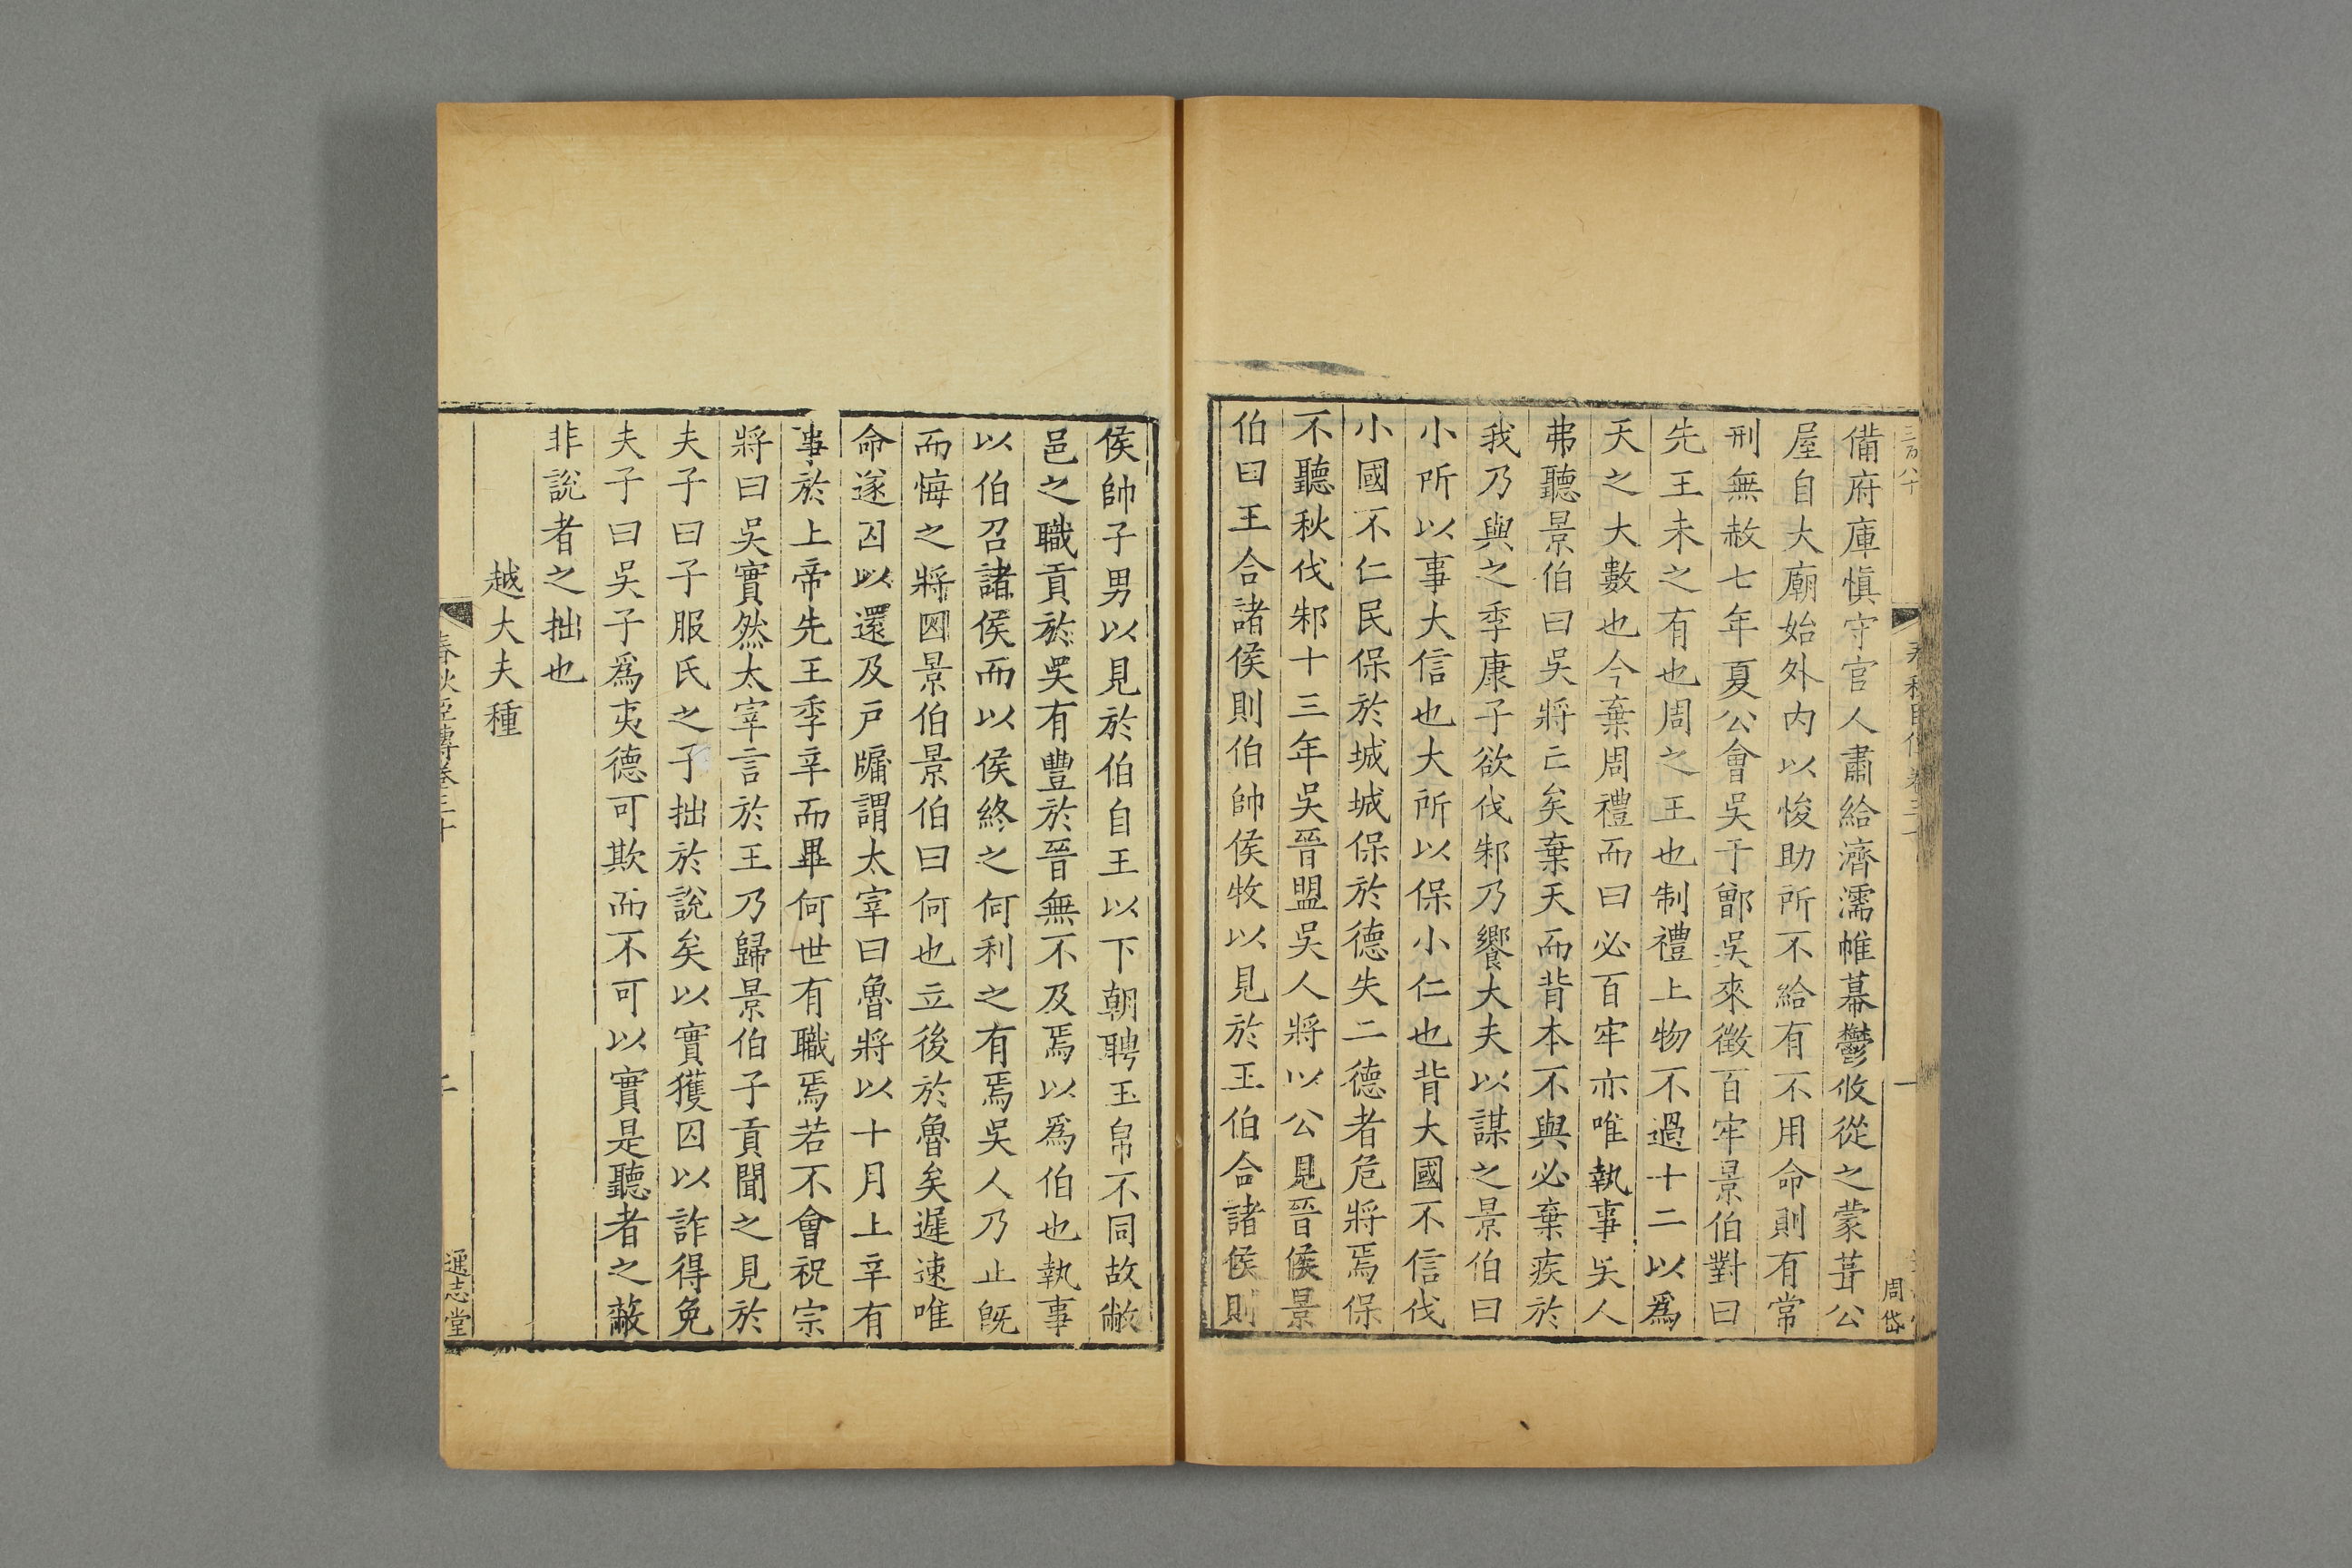 三百八十
備府庫愼守官人肅給濟濡帷幕鬱攸從之蒙葺公
屋自大廟始外内以悛助所不給有不用命則有常
刑無赦七年夏公會吳于鄫吳來徵百牢景伯對曰
先王未之有也周之王也制禮上物不過十二以爲
天之大數也今棄周禮而曰必百牢亦唯執事吳人
弗聽景伯曰吳將亡矣棄天而背本不與必棄疾於
我乃與之季康子欲伐邾乃饗大夫以謀之景伯曰
小所以事大信也大所以保小仁也背大國不信伐
小國不仁民保於城城保於德失二德者危將焉保
不聽秋伐邾十三年吳晉盟吳人將以公見晉侯景
伯曰王合諸侯則伯帥侯牧以見於王伯合諸侯則
周岱
侯帥子男以見於伯自王以下朝聘玉帛不同故敝
邑之職貢於吳有豐於晉無不及焉以爲伯也執事
以伯召諸侯而以侯終之何利之有焉吳人乃止旣
而悔之將囚景伯景伯曰何也立後於魯矣遲速唯
命遂囚以還及戸牖謂太宰曰魯將以十月上辛有
事於上帝先王季辛而畢何世有職焉若不會祝宗
將曰吳實然太宰言於王乃歸景伯子貢聞之見於
夫子曰子服氏之子拙於說矣以實獲囚以詐得免
夫子曰吳子爲夷德可欺而不可以實是聽者之蔽
非說者之拙也
越大夫種
春秋臣傳卷三十
通志堂